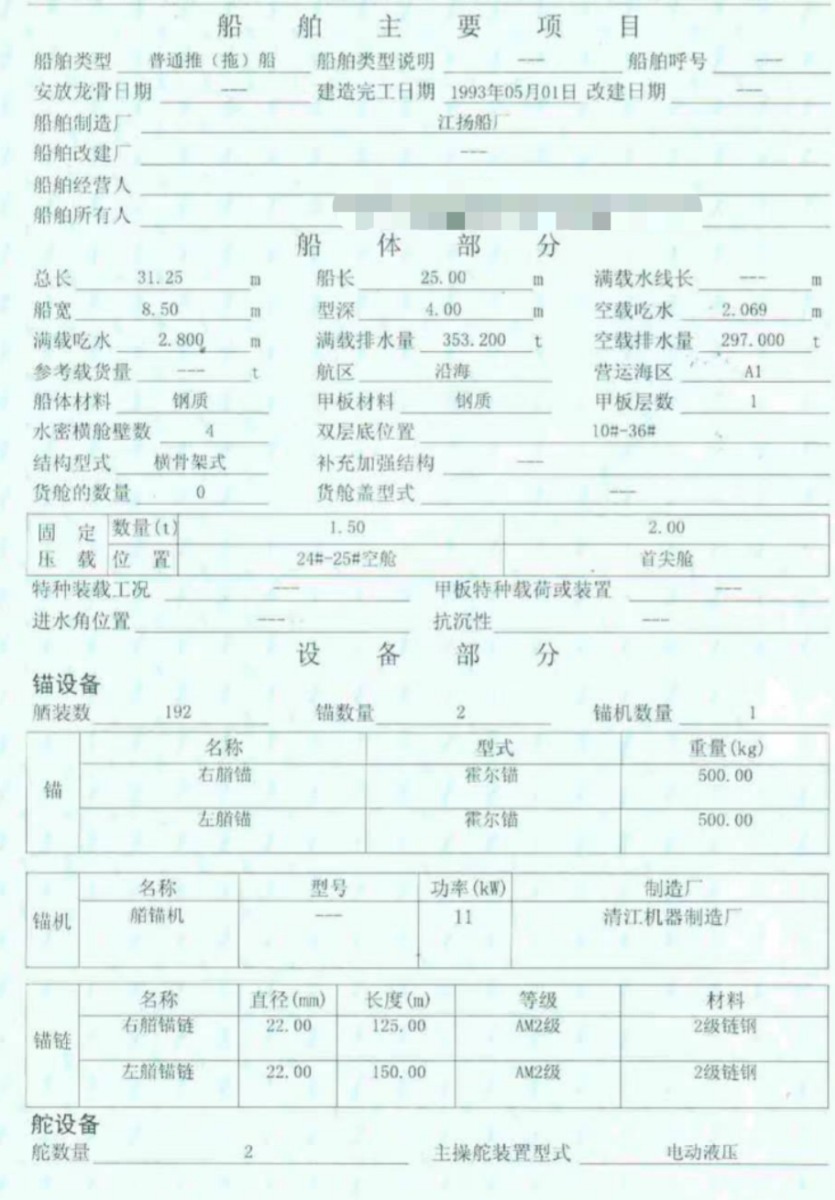 船舶主要项目
船舶类型 普通推（拖）船 船舶类型说明 --- 船舶呼号 ---
安放龙骨日期 --- 建造完工日期 1993年05月01日 改建日期 ---
船舶制造厂 江扬船厂
船舶改建厂 ---
船舶经营人
船舶所有人
船体部分
总长 31.25 m 船长 25.00 m 满载水线长 --- m
船宽 8.50 m 型深 4.00 m 空载吃水 2.069 m
满载吃水 2.800 m 满载排水量 353.200 t 空载排水量 297.000 t
参考载货量 --- t 航区 沿海 营运海区 A1
船体材料 钢质 甲板材料 钢质 甲板层数 1
水密横舱壁数 4 双层底位置 10#-36#
结构型式 横骨架式 补充加强结构 ---
货舱的数量 0 货舱盖型式 ---
固定 数量(t) 1.50 2.00
压载 位置 24#-25#空舱 首尖舱
特种装载工况 --- 甲板特种载荷或装置 ---
进水角位置 --- 抗沉性 ---
设备部分
锚设备
舾装数 192 锚数量 2 锚机数量 1
名称 型式 重量(kg)
右艏锚 霍尔锚 500.00
锚
左艏锚 霍尔锚 500.00
名称 型号 功率(kW) 制造厂
锚机 艏锚机 --- 11 清江机器制造厂
名称 直径(mm) 长度(m) 等级 材料
右艏锚链 22.00 125.00 AM2级 2级链钢
锚链
左艏锚链 22.00 150.00 AM2级 2级链钢
舵设备
舵数量 2 主操舵装置型式 电动液压